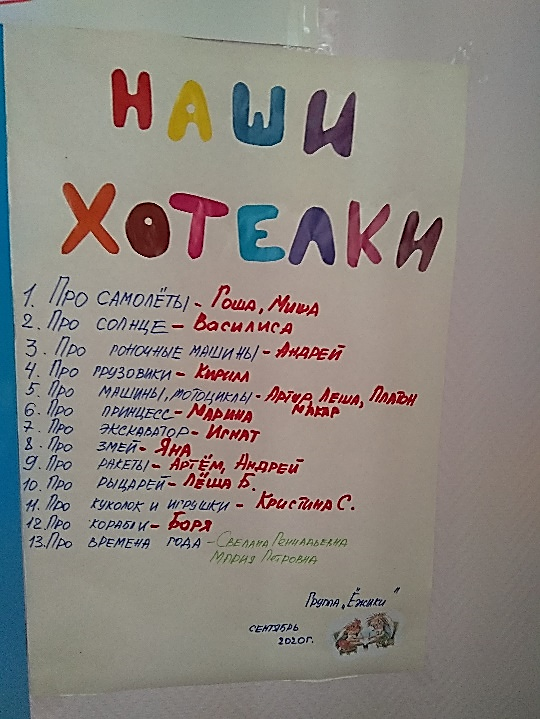 НАШИ
ХОТЕЛКИ
1. Про самолёты - Гоша, Миша
2. Про солнце - Василиса
3. Про гоночные машины - Андрей
4. Про грузовики - Кирилл
5. Про машины, мотоциклы - Артур, Леша, Платон
Макар
6. Про принцесс - Марина
7. Про экскаватор - Игнат
8. Про змей - Яна
9. Про ракеты - Артём, Андрей
10. Про рыцарей - Лёша Б.
11. Про куколок и игрушки - Кристина С.
12. Про корабли - Боря
13. Про времена года - Светлана Геннадьевна
Мария Петровна
Группа „Ёжики"
сентябрь
2020г.